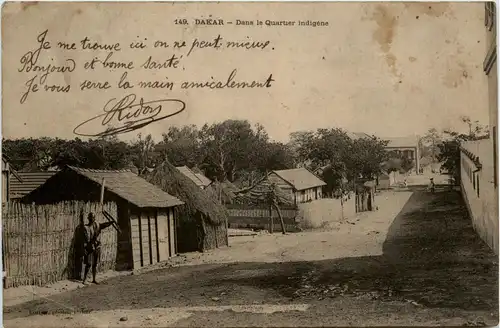 149. DAKAR – Dans le Quartier indigène
Je me trouve ici on ne peut mieux.
Bonjour et bonne santé.
Je vous serre la main amicalement
Ridon